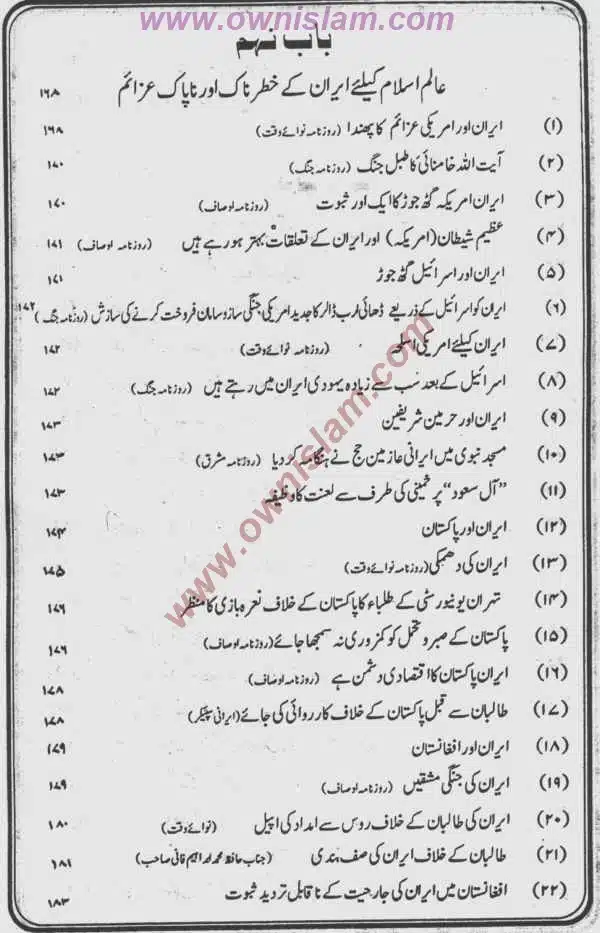 www.ownislam.com
باب نہم
عالم اسلام کیلئے ایران کے خطرناک اور ناپاک عزائم ۱۶۸
(۱) ایران اور امریکی عزائم کا پھندا (روزنامہ نوائے وقت) ۱۶۸
(۲) آیت اللہ خامنائی کا طبل جنگ (روزنامہ جنگ) ۱۷۰
(۳) ایران امریکہ گٹھ جوڑ کا ایک اور ثبوت (روزنامہ اوصاف) ۱۷۰
(۴) عظیم شیطان (امریکہ) اور ایران کے تعلقات بہتر ہو رہے ہیں (روزنامہ اوصاف) ۱۷۱
(۵) ایران اور اسرائیل گٹھ جوڑ ۱۷۱
(۶) ایران کو اسرائیل کے ذریعے ڈھائی ارب ڈالر کا جدید امریکی جنگی ساز و سامان فروخت کرنے کی سازش (روزنامہ جنگ) ۱۷۲
(۷) ایران کیلئے امریکی اسلحہ (روزنامہ نوائے وقت) ۱۷۲
(۸) اسرائیل کے بعد سب سے زیادہ یہودی ایران میں رہتے ہیں (روزنامہ جنگ) ۱۷۲
(۹) ایران اور حرمین شریفین ۱۷۳
(۱۰) مسجد نبوی میں ایرانی عازمین حج نے ہنگامہ کر دیا (روزنامہ مشرق) ۱۷۳
(۱۱) ”آل سعود“ پر خمینی کی طرف سے لعنت کا وظیفہ ۱۷۳
(۱۲) ایران اور پاکستان ۱۷۴
(۱۳) ایران کی دھمکی (روزنامہ نوائے وقت) ۱۷۵
(۱۴) تہران یونیورسٹی کے طلباء کا پاکستان کے خلاف نعرہ بازی کا منظر ۱۷۶
(۱۵) پاکستان کے صبر و تحمل کو کمزوری نہ سمجھا جائے (روزنامہ اوصاف) ۱۷۶
(۱۶) ایران پاکستان کا اقتصادی دشمن ہے (روزنامہ اوصاف) ۱۷۸
(۱۷) طالبان سے قبل پاکستان کے خلاف کارروائی کی جائے (ایرانی سپیکر) ۱۷۸
(۱۸) ایران اور افغانستان ۱۷۹
(۱۹) ایران کی جنگی مشقیں (روزنامہ اوصاف) ۱۷۹
(۲۰) ایران کی طالبان کے خلاف روس سے امداد کی اپیل (نوائے وقت) ۱۸۰
(۲۱) طالبان کے خلاف ایران کی صف بندی (جناب حافظ محمد ابراہیم فانی صاحب) ۱۸۱
(۲۲) افغانستان میں ایران کی جارحیت کے ناقابل تردید ثبوت ۱۸۳
www.ownislam.com